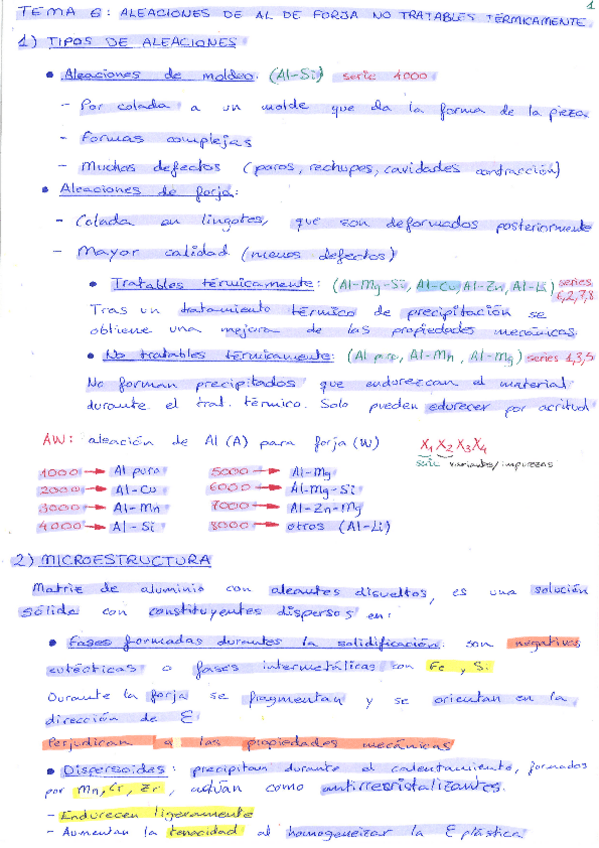 1
TEMA 6: ALEACIONES DE AL DE FORJA NO TRATABLES TÉRMICAMENTE.
1) TIPOS DE ALEACIONES
• Aleaciones de moldeo: (Al-Si) serie 4000
- Por colada a un molde que da la forma de la pieza.
- Formas complejas
- Muchos defectos (poros, rechupes, cavidades contracción)
• Aleaciones de forja:
- Colada en lingotes, que son deformados posteriormente
- Mayor calidad (menos defectos)
• Tratables térmicamente: (Al-Mg-Si, Al-Cu, Al-Zn, Al-Li) series 6,2,7,8
Tras un tratamiento térmico de precipitación se
obtiene una mejora de las propiedades mecánicas.
• No tratables térmicamente: (Al puro, Al-Mn, Al-Mg) series 1,3,5
No forman precipitados que endurezcan el material
durante el trat. térmico. Solo pueden edurecer por acritud
AW: aleación de Al (A) para forja (W) X1 X2 X3 X4
serie variantes/impurezas
1000 → Al puro 5000 → Al-Mg
2000 → Al-Cu 6000 → Al-Mg-Si
3000 → Al-Mn 7000 → Al-Zn-Mg
4000 → Al-Si 8000 → otros (Al-Li)
2) MICROESTRUCTURA
Matriz de aluminio con aleantes disueltos, es una solución
sólida con constituyentes dispersos en:
• Fases formadas durantes la solidificación: son negativas
eutécticas o fases intermetálicas con Fe, Si
Durante la forja se fragmentan y se orientan en la
dirección de ε
Perjudican a las propiedades mecánicas
• Dispersoides: precipitan durante el calentamiento, formados
por Mn, Cr, Zr, actúan como antirrecristalizantes.
- Endurecen ligeramente
- Aumentan la tenacidad al homogeneizar la ε plástica